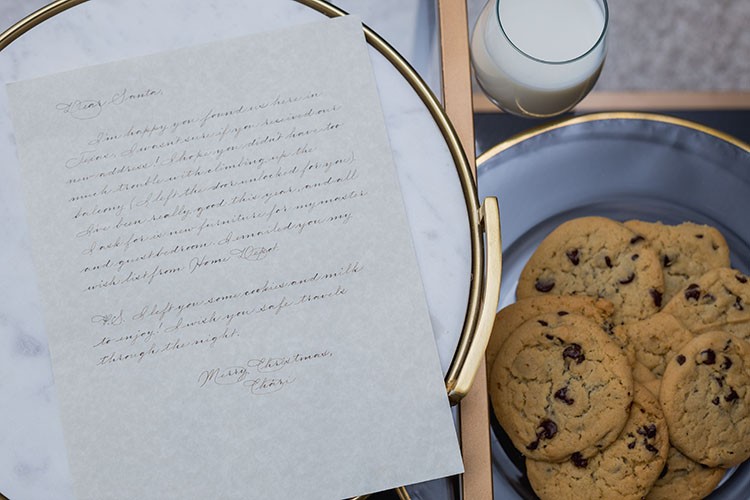 Dear Santa,
I'm happy you found us here in
Texas, I wasn't sure if you received our
new address! I hope you didn't have too
much trouble with climbing up the
balcony (I left the door unlocked for you)
I've been really good this year, and all
I ask for is new furniture for my master
and guest bedroom. I emailed you my
wish list from Home Depot.
P.S. I left you some cookies and milk
to enjoy! I wish you safe travels
through the night.
Merry Christmas,